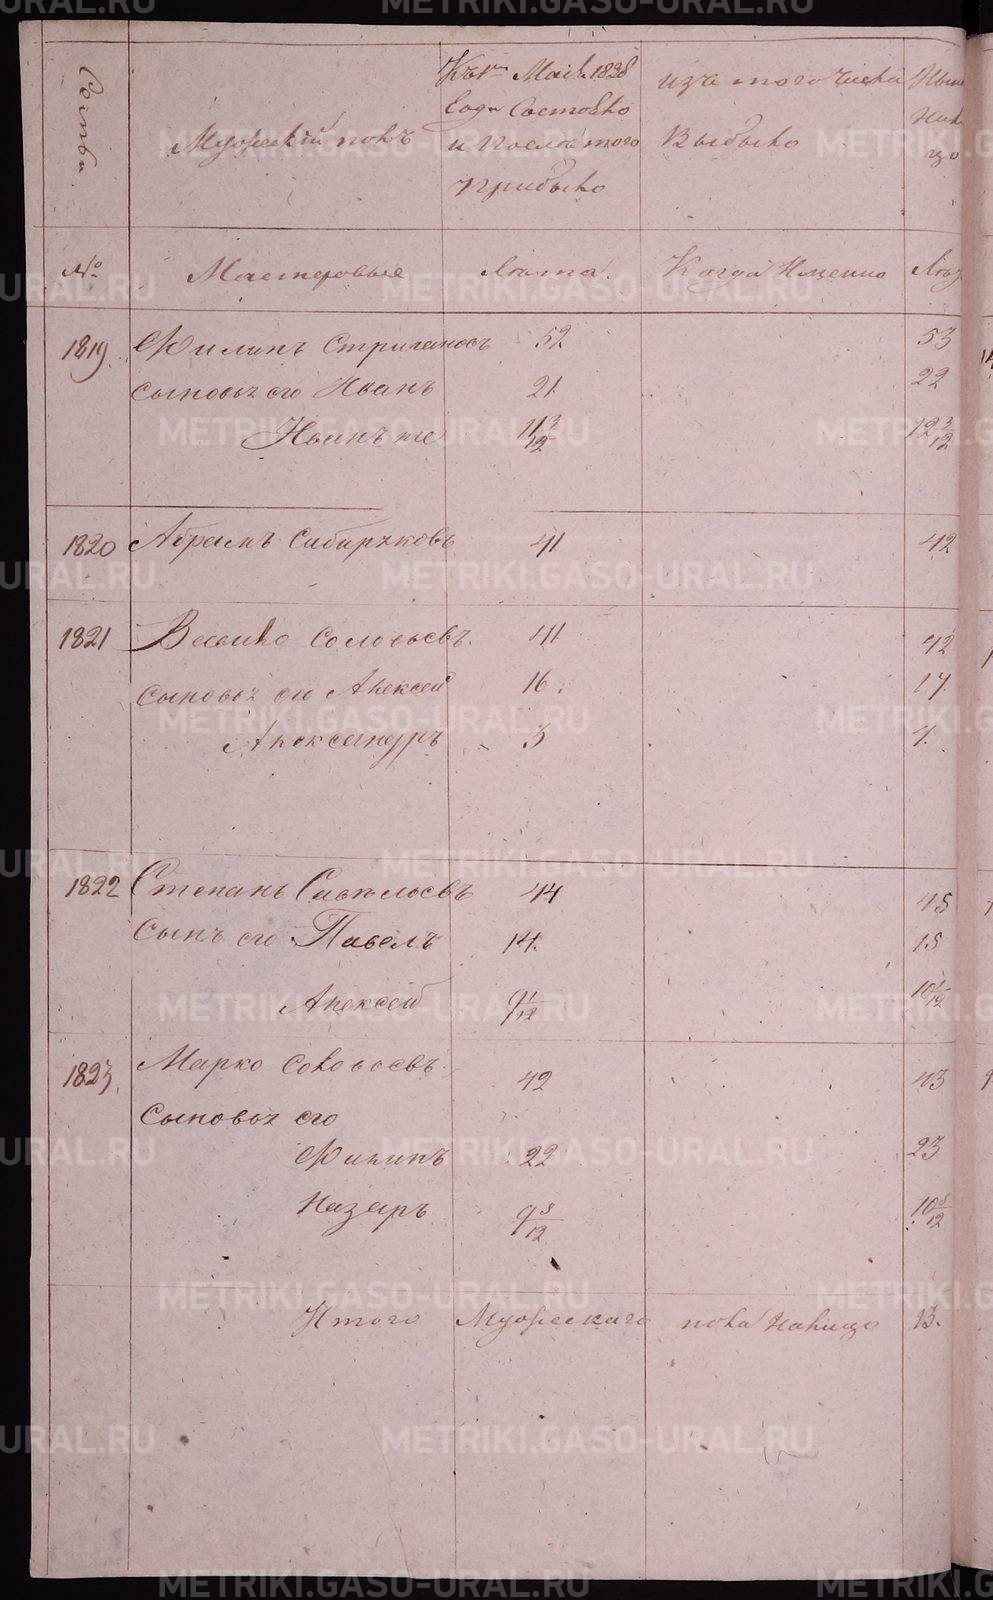 Семьи
Мужескій полъ
Къ 1му Маія 1828
Года Состояло
и После того
Прибыло
изъ того числа
Выбыло
№
Мастеровые
Лѣта.
Когда Имянно
1819.
Филипъ Стригановъ
52
53
сыновья его Иванъ
21.
22
Иванъ же
11 3/12
12 3/12
1820
Абрамъ Сибиряковъ
41
42
1821
Василко Соловьевъ.
41
42
сыновья его Алексей
16.
17.
Александръ
3
4.
1822
Степанъ Савѣлоевъ
44
45
Сынъ его Павелъ
14.
15
Алексей
9 1/12
10 1/12
1823.
Марко Соловьевъ
42
43
Сыновья его
Филипъ
22
23
Назаръ
9 8/12
10 8/12
Итого Мужескаго пола Налицо 13.
METRIKI.GASO-URAL.RU